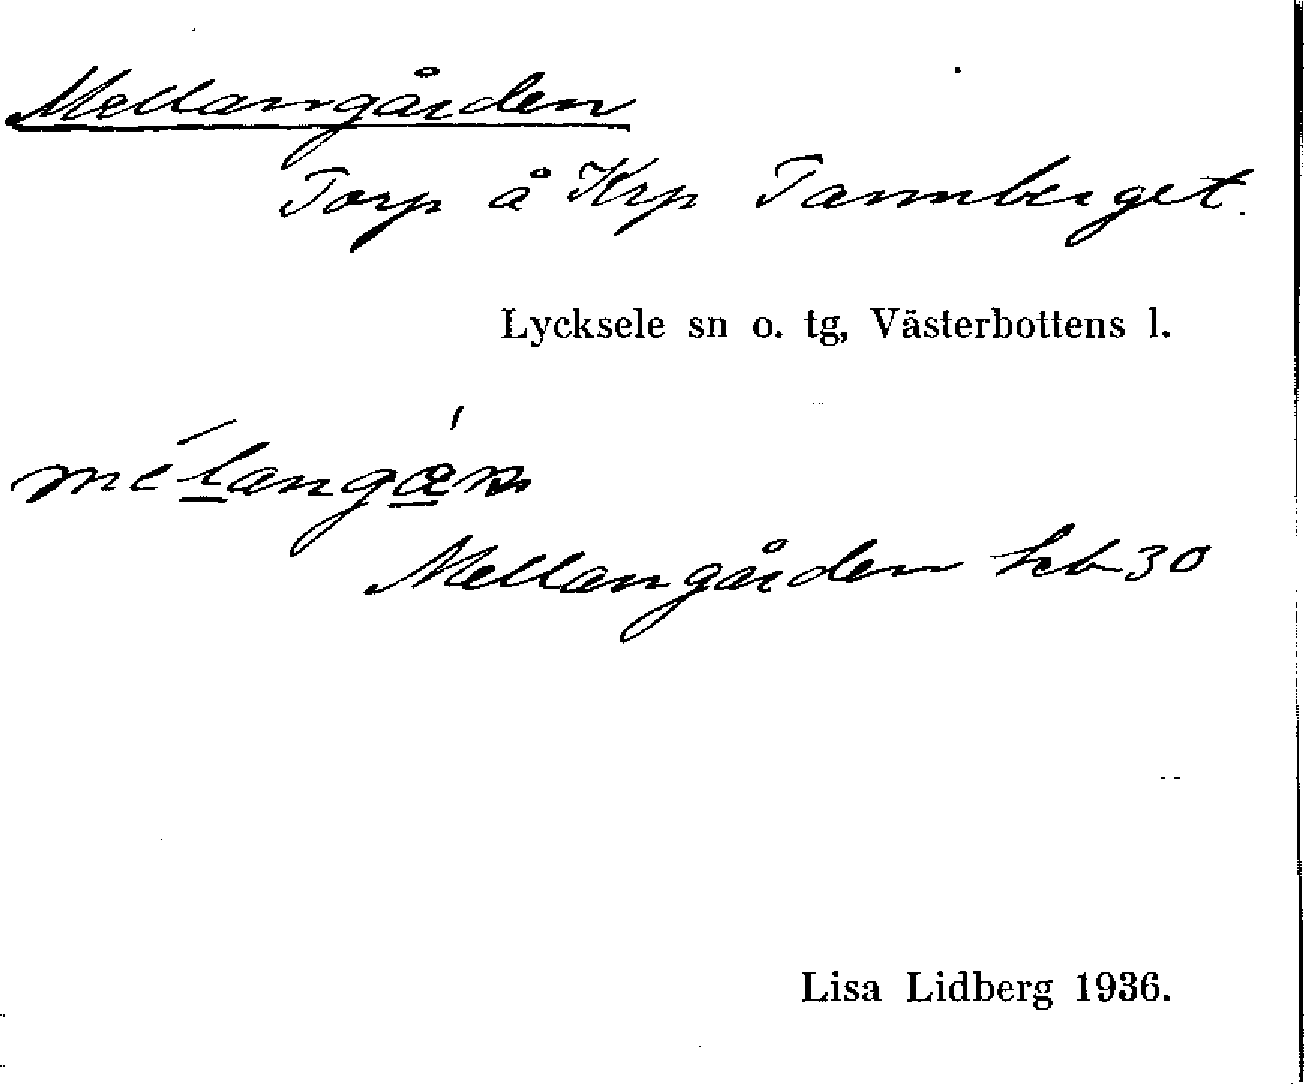 Mellangården
Torp å Krp Tannberget.
Lycksele sn o. tg, Västerbottens l.
Mellangården hcb 30
Lisa Lidberg 1936.